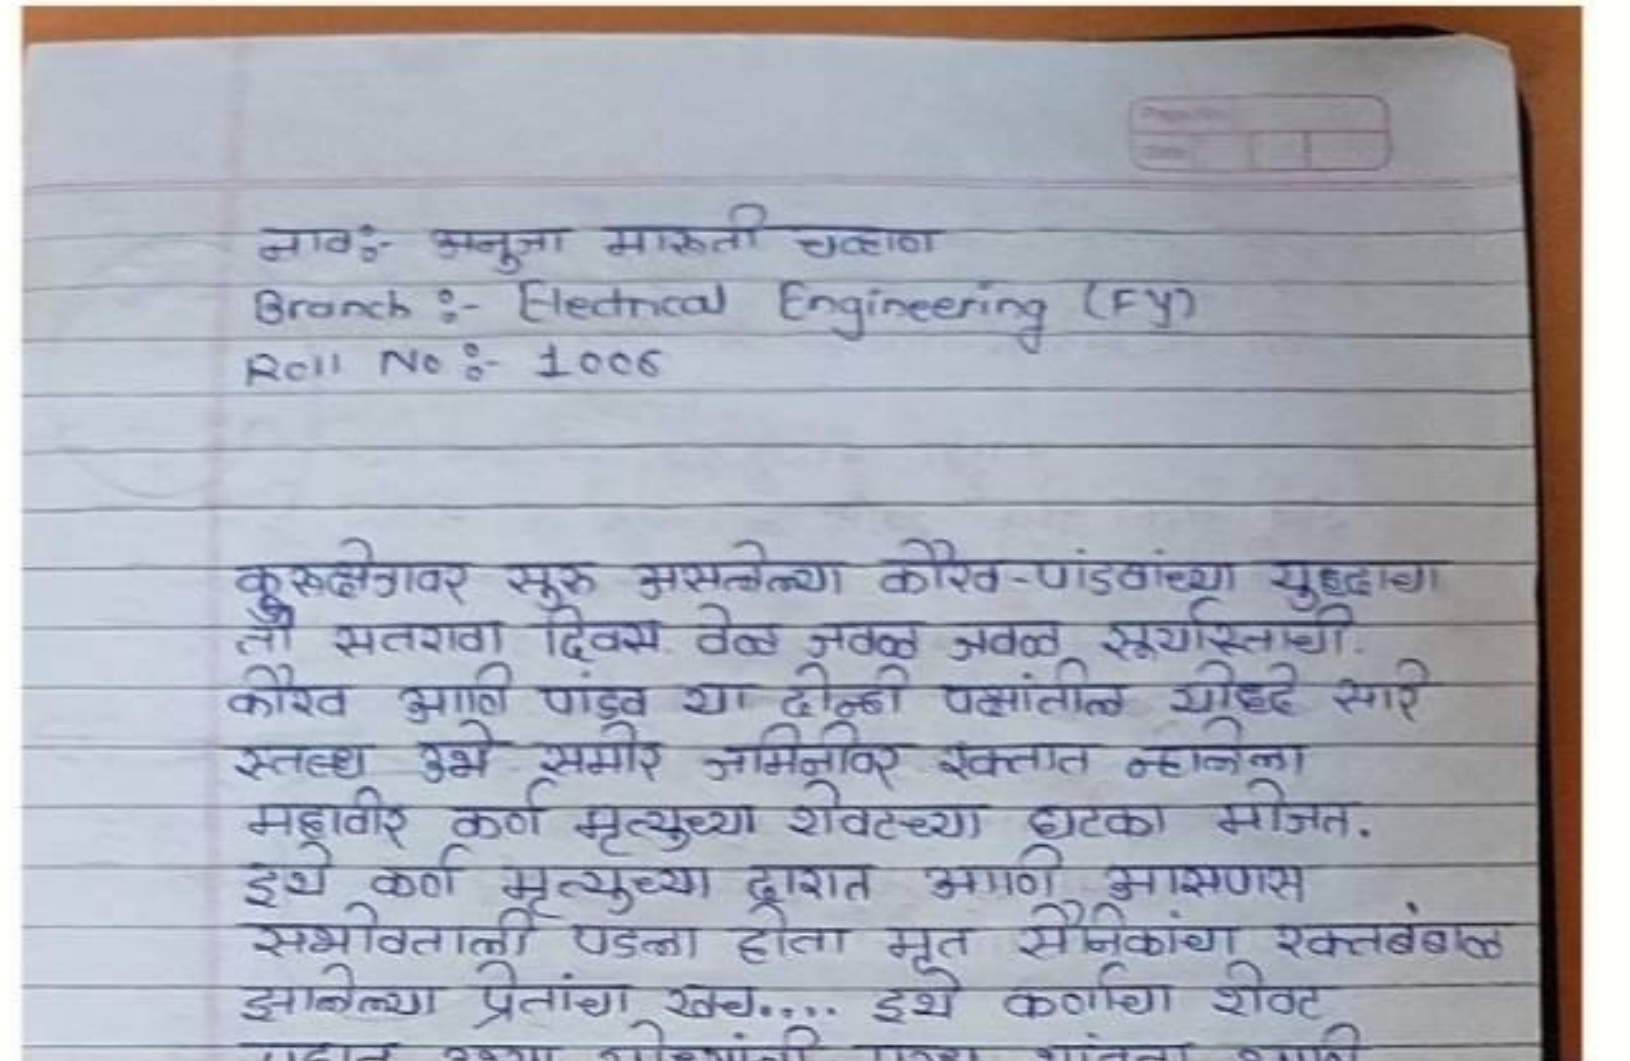 नाव:- अनुजा मारुती चव्हाण
Branch :- Electrical Engineering (FY)
Roll No :- 1006
कुरूक्षेत्रावर सुरू असलेल्या कौरव-पांडवांच्या युद्धाचा
तो सतरावा दिवस वेळ जवळ जवळ सूर्यास्ताची.
कौरव आणि पांडव या दोन्ही पक्षांतील योद्धे सारे
स्तब्ध उभे समोर जमिनीवर रक्तात न्हालेला
महावीर कर्ण मृत्युच्या शेवटच्या घटका मोजत.
इथे कर्ण मृत्युच्या द्वारात आणि आसपास
सभोवताली पडला होता मृत सैनिकांचा रक्तबंबाळ
झालेल्या प्रेतांचा खच.... इथे कर्णाचा शेवट